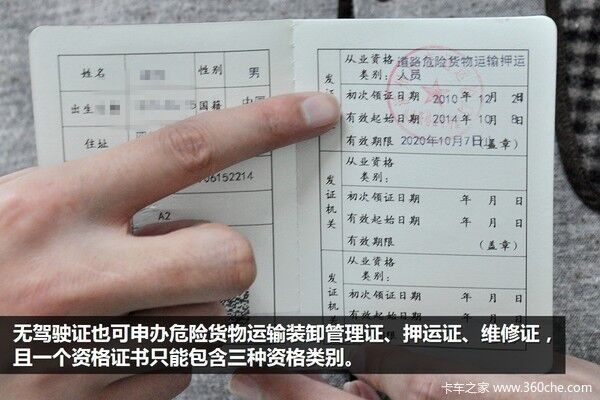 姓名 性别 男
出生 5 国籍 中国
住址 四
06152214
A2
发证机关
从业资格类别: 道路危险货物运输押运人员
初次领证日期 2010 年 12 月 21 日
有效起始日期 2014 年 10 月 8 日
有效期限 2020年10月7日止 (盖章)
发证机关
从业资格类别:
初次领证日期 年 月 日
有效起始日期 年 月 日
有效期限 (盖章)
从业资格类别:
初次领证日期 年 月 日
无驾驶证也可申办危险货物运输装卸管理证、押运证、维修证，
且一个资格证书只能包含三种资格类别。
卡车之家 www.360che.com